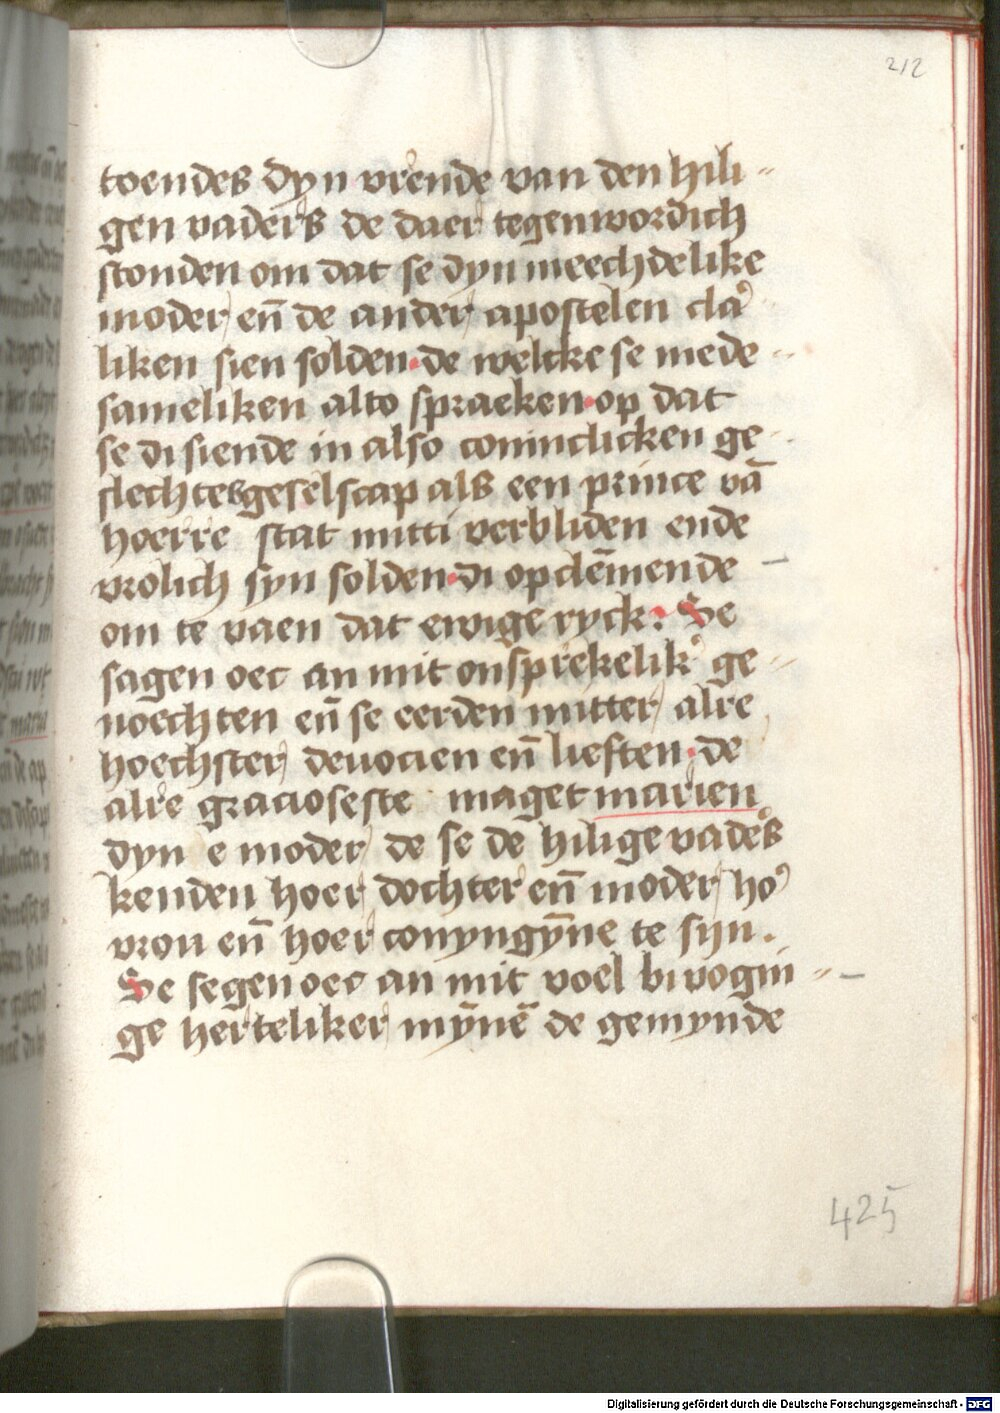 212
toendes dyn vrende van den hili-
gen vaders de daer tegenwordich
stonden om dat se dyn meechdelike
moder en̄ de ander apostelen cla
liken sien solden·de welcke se mede-
sameliken alto spraeken·op dat
se di siende in also coninclicken ge-
slechtesgeselscap als een prince vā
hoerre stat mitti verbliden ende
vrolich syn solden·di opclēmende
om te vaen dat ewige ryck: Se
sagen oec an mit onsprekelik ge-
noechten en̄ se eerden mitter alre
hoechster deuocien en̄ lieften·de
alre gracioseste maget marien
dyn e moder de se de hilige vaders
kenden hoer dochter en̄ moder ho
vrou en̄ hoer conyngȳne te syn.
Se segen oec an mit voel bivogni-
ge herteliker mȳnē de gemynde
425
Digitalisierung gefördert durch die Deutsche Forschungsgemeinschaft - DFG